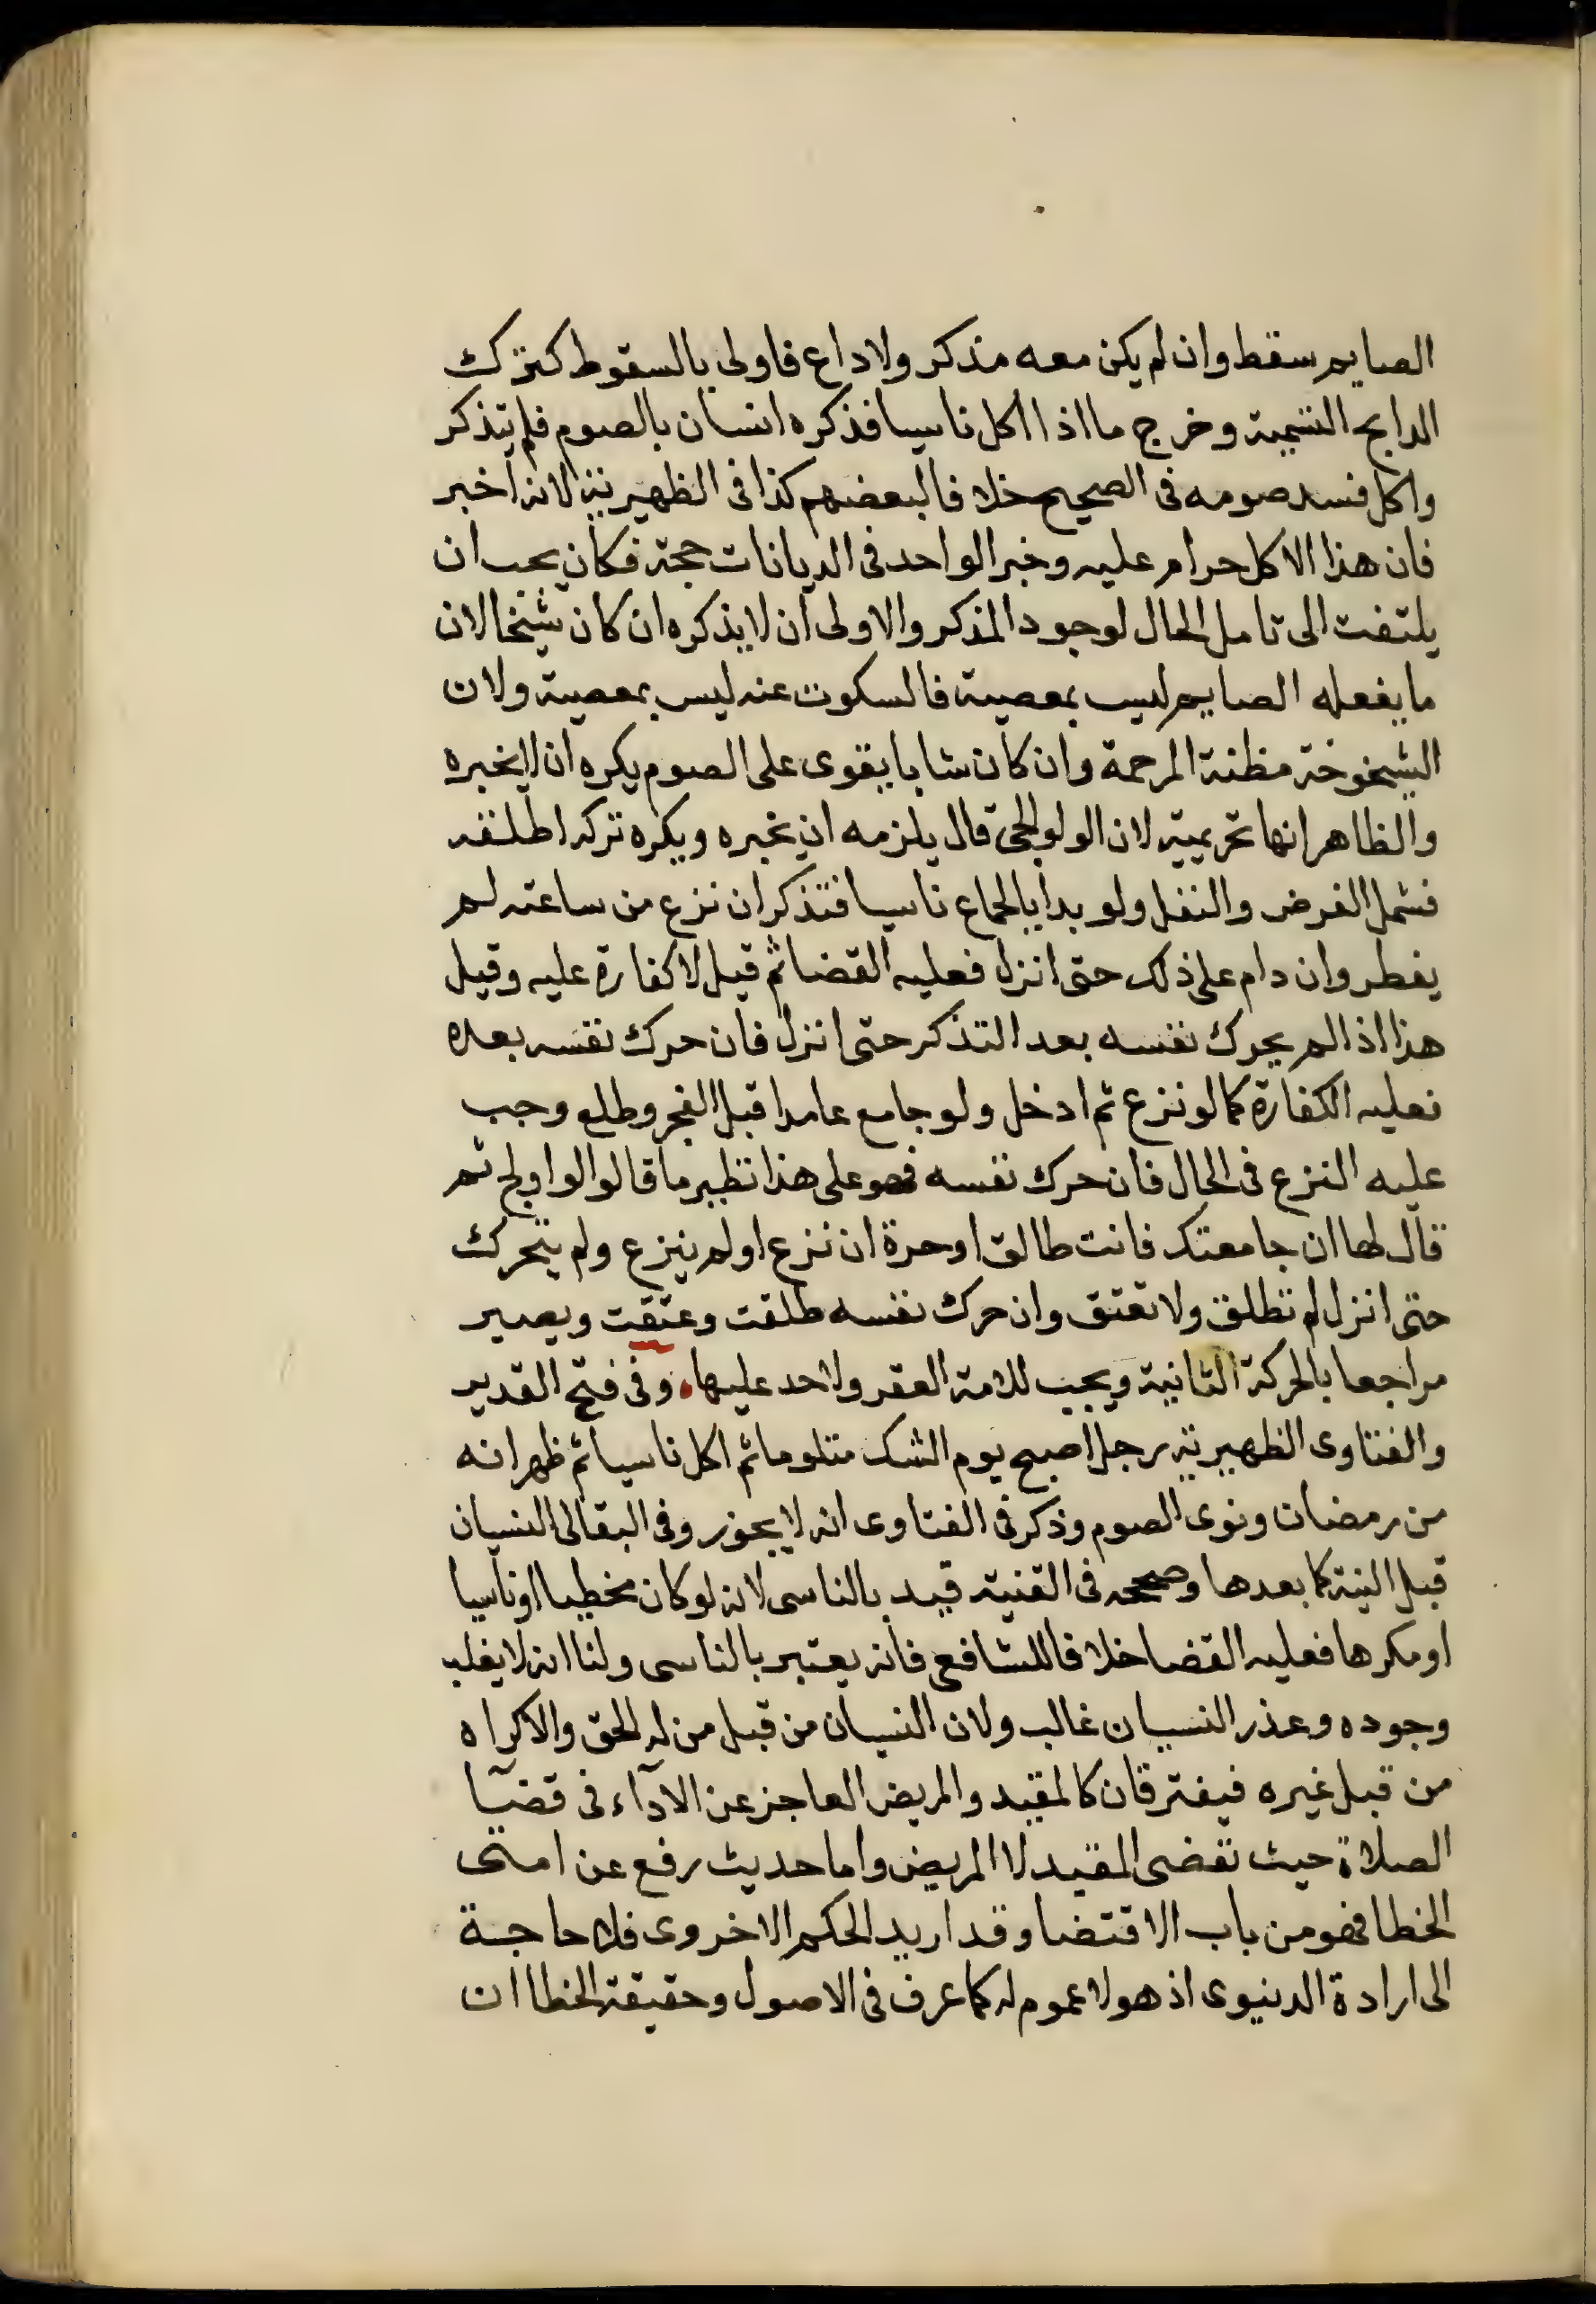 الصايم سقط وان لم يكن معه مذكر ولا داع فاولى بالسقوط كترك
الذابح التسمية وخرج ما اذا اكل ناسيا فذكره انسان بالصوم فلم يتذكر
واكل فسد صومه فى الصحيح خلافا لبعضهم كذا فى الظهيرية لانه اخبر
فان هذا الاكل حرام عليه وخبر الواحد فى الديانات حجة فكان يجب ان
يلتفت الى تامل الحال لوجود المذكر والاولى ان لا يذكره ان كان شيخا لان
ما يفعله الصايم ليس بمعصية فالسكوت عنه ليس بمعصية ولان
الشيخوخة مظنة المرحمة وان كان شابا يقوى على الصوم يكره ان لا يخبره
والظاهر انها تحريمية لان الولوالجى قال يلزمه ان يخبره ويكره تركه اطلقه
فشمل الفرض والنفل ولو بدا بالجماع ناسيا فتذكر ان نزع من ساعته لم
يفطر وان دام على ذلك حتى انزل فعليه القضا ثم قيل لا كفارة عليه وقيل
هذا اذا لم يحرك نفسه بعد التذكر حتى انزل فان حرك نفسه بعده
فعليه الكفارة كما لو نزع ثم ادخل ولو جامع عامدا قبل الفجر وطلع وجب
عليه النزع فى الحال فان حرك نفسه فهو على هذا نظير ما قالوا لو اولج ثم
قال لها ان جامعتك فانت طالق او حرة ان نزع او لم ينزع ولم يتحرك
حتى انزل لم تطلق ولا تعتق وان حرك نفسه طلقت وعتقت ويصير
مراجعا بالحركة الثانية ويجب للامة العقر ولا حد عليها وفى فتح القدير
والفتاوى الظهيرية رجل اصبح يوم الشك متلوما ثم اكل ناسيا ثم ظهر انه
من رمضان ونوى الصوم وذكر فى الفتاوى انه لا يجوز وفى البقالى النسيان
قبل النية كما بعدها وصححه فى القنية قيد بالناسى لانه لو كان مخطيا او ناسيا
او مكرها فعليه القضا خلافا للشافعى فانه يعتبر بالناسى ولنا انه لا يغلب
وجوده وعذر النسيان غالب ولان النسيان من قبل من له الحق والاكراه
من قبل غيره فيفترقان كالمقيد والمريض العاجز عن الاداء فى قضا
الصلاة حيث تقضى المقيد لا المريض واما حديث رفع عن امتى
الخطا فهو من باب الاقتضا وقد اريد الحكم الاخروى فلا حاجة
الى ارادة الدنيوى اذ هو لا عموم له كما عرف فى الاصول وحقيقة الخطا ان